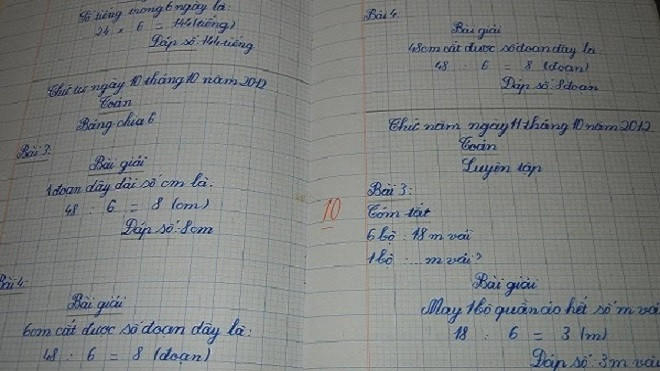 Số tiếng trong 6 ngày là:
24 × 6 = 144 (tiếng)
Đáp số: 144 tiếng
Thứ tư ngày 10 tháng 10 năm 2012
Toán
Bảng chia 6
Bài 3:
Bài giải
1 đoạn dây dài số cm là:
48 : 6 = 8 (cm)
Đáp số: 8cm
Bài 4:
Bài giải
6cm cắt được số đoạn dây là:
48 : 6 = 8 (đoạn)
10
Bài 4
Bài giải
48cm cắt được số đoạn dây là
48 : 6 = 8 (đoạn)
Đáp số 8 đoạn
Thứ năm ngày 11 tháng 10 năm 2012
Toán
Luyện tập
Bài 3:
Tóm tắt
6 bộ : 18 m vải
1 bộ : ... m vải?
Bài giải
May 1 bộ quần áo hết số m vải
18 : 6 = 3 (m)
Đáp số: 3m vải